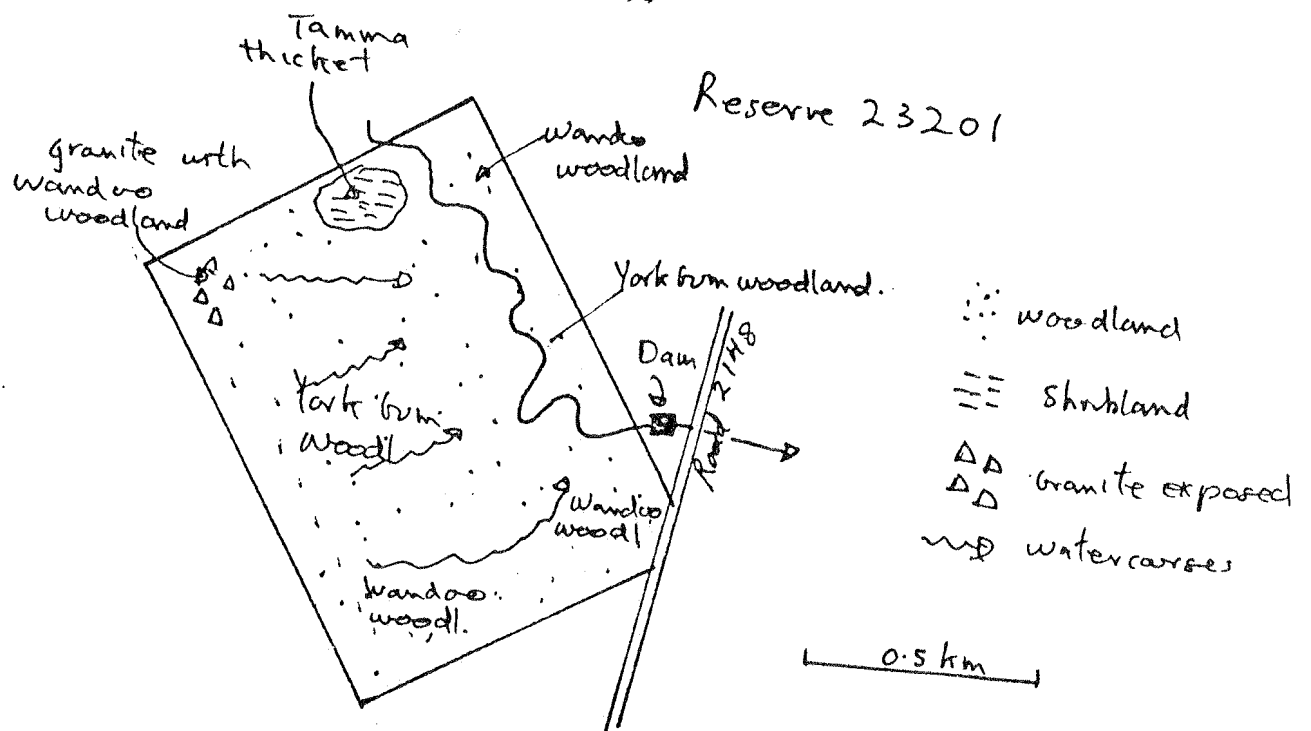 Tamma
thicket
Reserve 23201
Wandoo
woodland
granite with
Wandoo
woodland
York Gum woodland.
Dam
Road 21H8
York Gum
Woodl
Wandoo
woodl
Wandoo.
woodl.
woodland
Shrubland
Granite exposed
watercarses
0.5 km